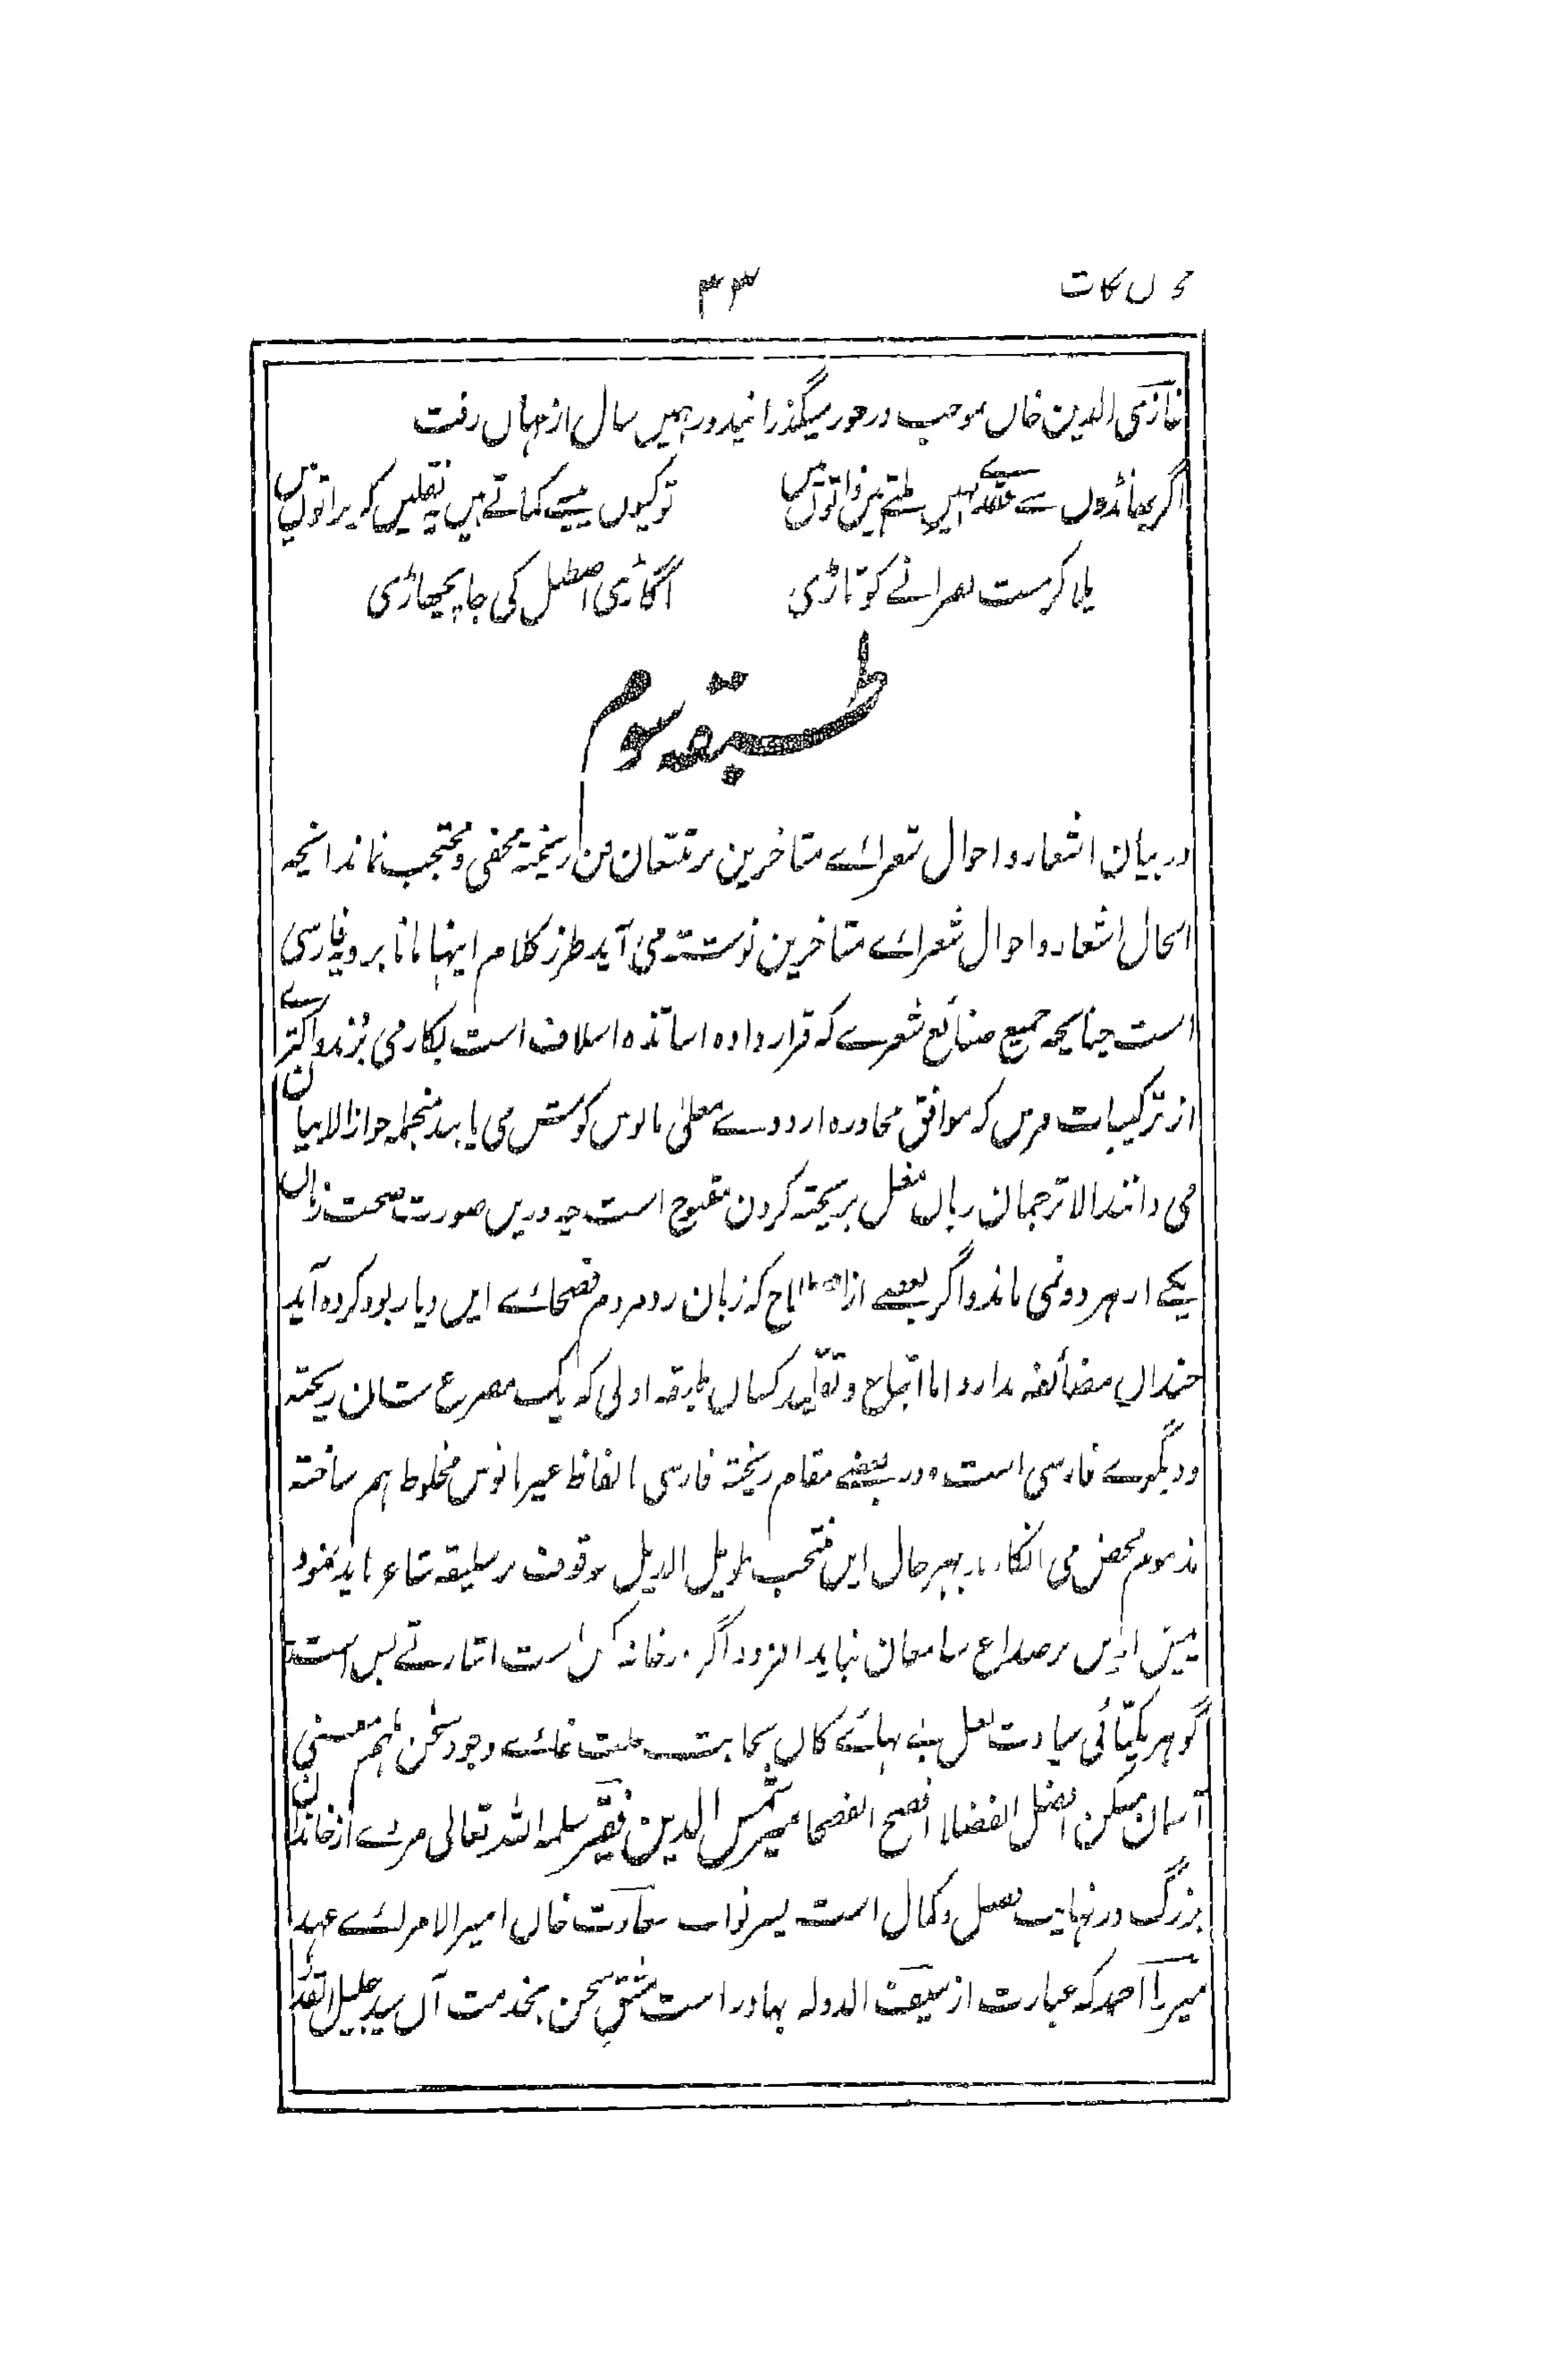 ۳۳
غازی الدین خاں موجب در خور میگذرانید در ہمیں سال از جہاں رفت
اگر بھانڈوں سے نہیں ملتے ہیں ذاتوں میں
تو کیوں پیسے کماتے ہیں یہ نقلیں کر براتوں میں
پلا کر مست بھرانے کو تاڑی
اگاڑی اصطبل کی جا پچھاڑی
طبقہ سوم
در بیان اشعار و احوال شعرائے متاخرین بر متتبعان فن ریختہ مخفی و محتجب نماند انچہ
الحال اشعار و احوال شعرائے متاخرین نوشتہ می آید طرز کلام اینہا مانا برویہ فارسی
است چنانچہ جمیع صنائع شعرے کہ قرار دادہ اساتذہ اسلاف است بکار می برند و اکثرے
از ترکیبات فرس کہ موافق محاورہ اردوے معلیٰ مانوس گوش می یابند منجملہ جواز البیان
می دانند الا ترجمان زبان مغل بریختہ کردن مقبوح است چہ دریں صورت صحت زبان
یکے از ہر دو نمی ماند و اگر بعضے از کہ زبان زد مردم فصحائے ایں دیار بود کردہ آید
چنداں مضائقہ ندارد اما اتباع و تقلید کساں طبقہ اولی کہ یک مصرع شان ریختہ
و دیگرے فارسی است و در بعضے مقام ریختہ فارسی الفاظ غیر مانوس مخلوط ہم ساختہ
مذموم محض می انگارند بہر حال ایں منتخب طویل الذیل موقوف بر سلیقہ شاعر باید نمود
بیش ازیں بر صداع سامعان نباید افزود اگر در خانہ کس است اشارتے بس است
گوہر یکتائی سیادت لعل بے بہائے کاں نجابت علت غائے وجود سخن فہم معنی
آسان میکن افضل الفضلا افصح الفصحا میر شمس الدین فقیر سلمہ اللہ تعالی مردے از خاندان
بزرگ در نہایت فضل و کمال است پسر نواب سعادت خاں امیر الامرائے عہد
میرزا احمد کہ عبارت از سیف الدولہ بہادر است مشق سخن بخدمت آں سید جلیل القدر